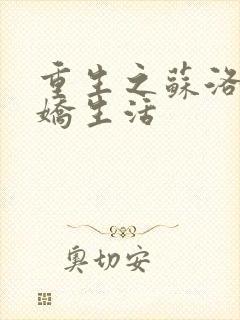 重生之蘇洛
嬌生活
奧切安